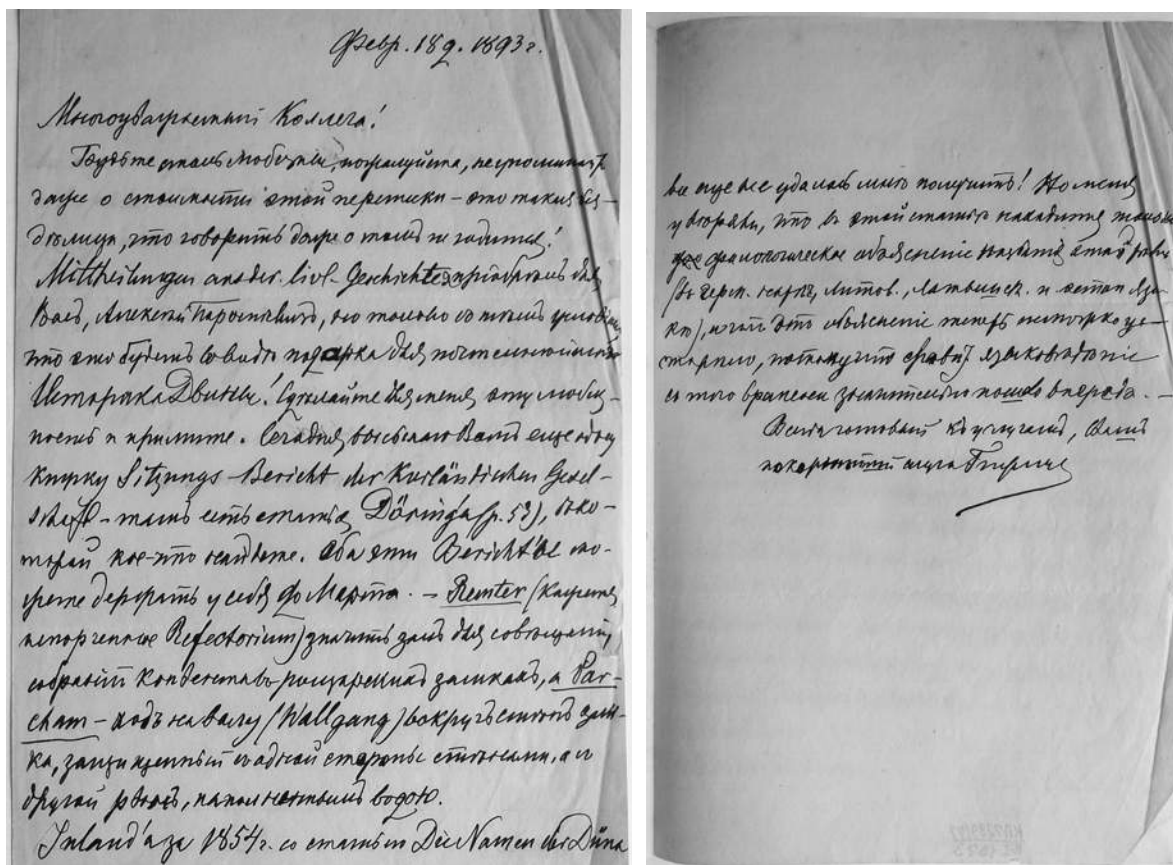 Февр. 18 д. 1893 г.
Многоуважаемый Коллега!
Будьте столь любезны, пожалуйста, не упоминать
даже о стоимости этой переписки – это такая без-
дѣлица, что говорить даже о томъ не годится!
Mittheilungen aus der livl. Geschichte я пріобрѣлъ для
Васъ, Алексѣй Парѳеньевичъ, но только съ тѣмъ условіемъ,
что это будетъ въ видѣ подарка для почтеннѣйшаго
Историка Двины! Сдѣлайте для меня эту любез-
ность и примите. Сегодня высылаю Вамъ еще одну
книжку Sitzungs-Bericht der Kurländischen Gesel-
schaft – тамъ есть статья Döring'a (p. 53), въ ко-
торой кое-что найдете. Оба эти Bericht'ы мо-
жете держать у себя до Марта. – Remter (кажется
испорченное Refectorium) значитъ залъ для совѣщаній,
собраній Конвентовъ рыцарскихъ замкахъ, а Par-
cham – ходъ на валу (Wallgang) вокругъ стѣнъ зам-
ка, защищенный съ одной стороны стѣнами, а съ
другой рвомъ, наполненнымъ водою.
Inland'а за 1854 г. со статьею Die Namen der Düna
все еще не удалось мнѣ получить! Но меня
увѣряли, что въ этой статьѣ находится только
филологическое объясненіе названій этой рѣки
(въ герм. нарѣч., литов., латышск. и эстон. язы-
кѣ), и что это объясненіе теперь нѣсколько ус-
тарѣло, потому что сравнит. языковѣдѣніе
съ того времени значительно пошло впередъ. –
Всегда готовый къ услугамъ, Вашъ
покорнѣйшій слуга